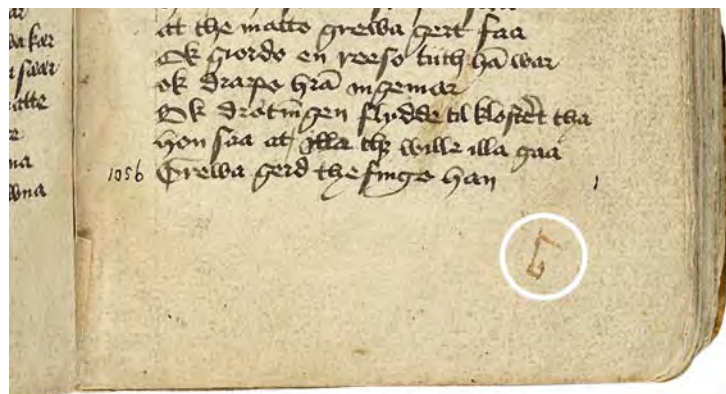 at the matto grewa gert faa
Ok giordo en reeso tiith hā war
ok drapo hrā ingemar
Ok drotnīgen flydde til klostet tha
hon saa at illa thz wille illa gaa
1056 Grewa gerd the fingo han